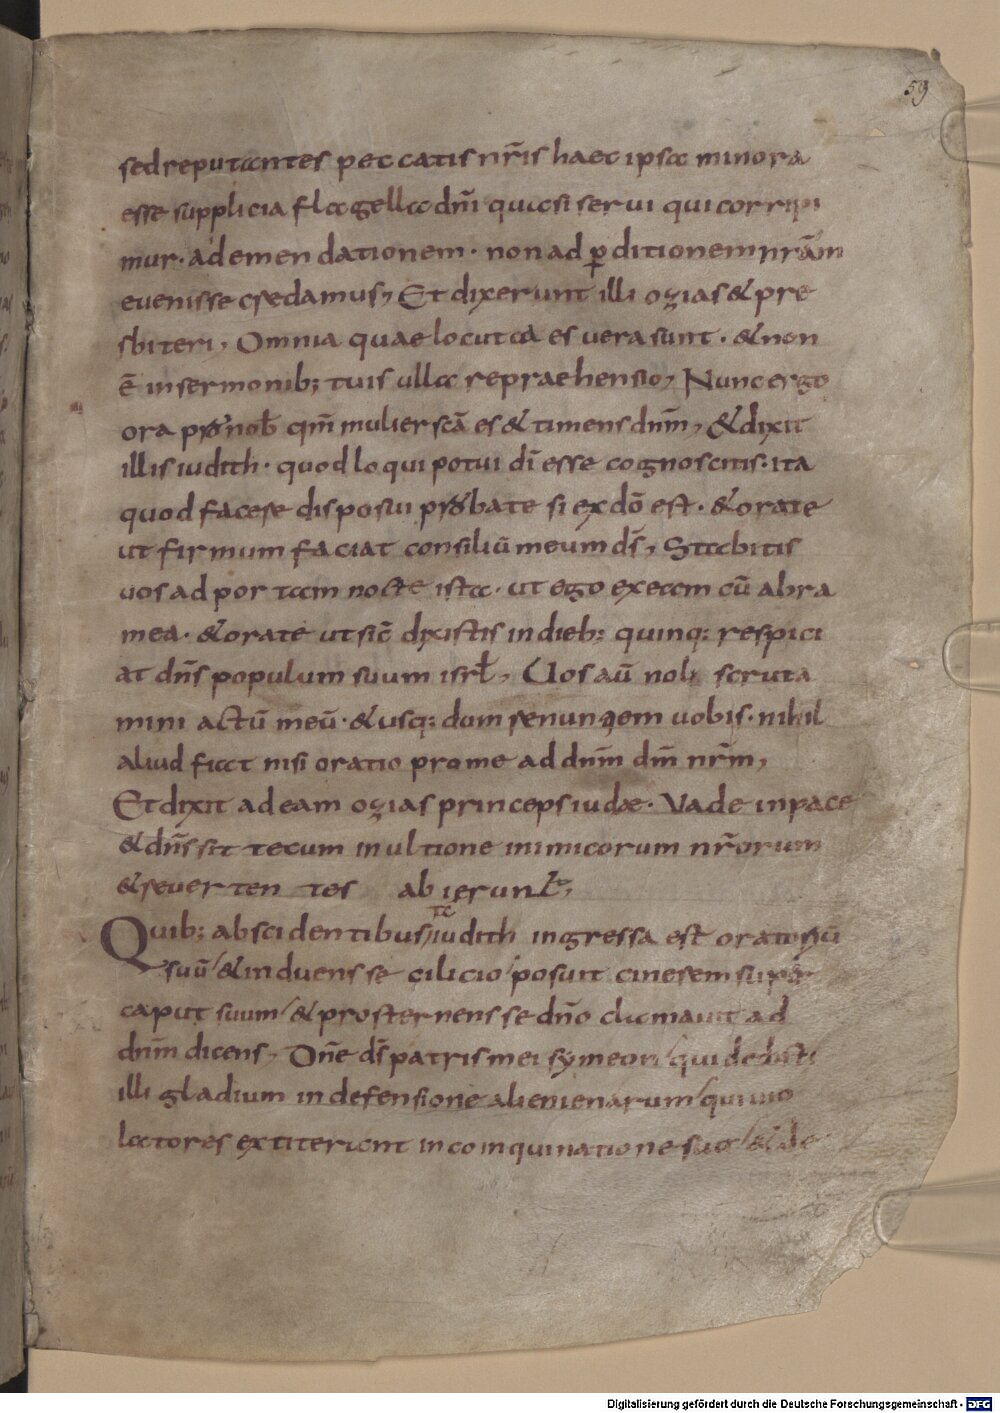 59
sed reputantes peccatis nr̄is haec ipsa minora
esse supplicia flagella dn̄i quasi serui qui corripi
mur· ad emendationem· non ad ꝑditionem nr̄am
euenisse credamus, Et dixerunt illi ozias & pre
sbiteri, Omnia quae locuta es uera sunt· & non
ē in sermonib; tuis ulla repraehensio, Nunc ergo
ora pro nob̄ qm̄ mulier scā es & timens dnm̄, & dixit
illis iudith· quod loqui potui dī esse cognoscitis· ita
quod facere disposui probate si ex dō est· & orate
ut firmum faciat consiliū meum ds̄, Stabitis
uos ad portam nocte ista· ut ego exeam cū abra
mea· & orate ut sic̄ dixistis in dieb; quinq; respici
at dn̄s populum suum isrł, Uos aū noli scruta
mini actū meū· & usq; dum renunciem uobis· nihil
aliud fiat nisi oratio pro me ad dnm̄ dm̄ nr̄m,
Et dixit ad eam ozias princeps iudæ· Vade in pace
& dn̄s sit tecum in ultione inimicorum nr̄orum
& reuertentes abierunt,
Quib; abscidentibus/ iudith ingressa est oratoriū
suū/ & induens se cilicio/ posuit cinerem super
caput suum/ & prosternens se dn̄o clamauit ad
dnm̄ dicens, Dn̄e ds̄ patris mei symeon/ qui dedisti
illi gladium in defensione alienienarum/ qui uio
latores extiterunt in coinquinatione sua/ & de
Digitalisierung gefördert durch die Deutsche Forschungsgemeinschaft - DFG